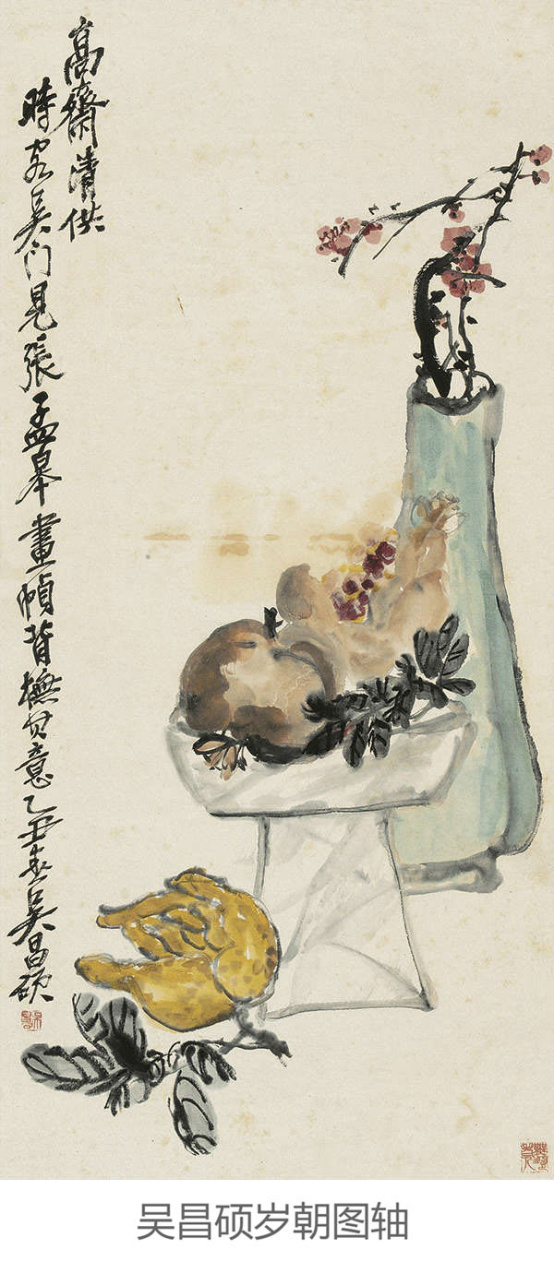 高齋清供
時客吳門見張孟皋畫幀背橅其意乙丑春吳昌碩
吴昌硕岁朝图轴